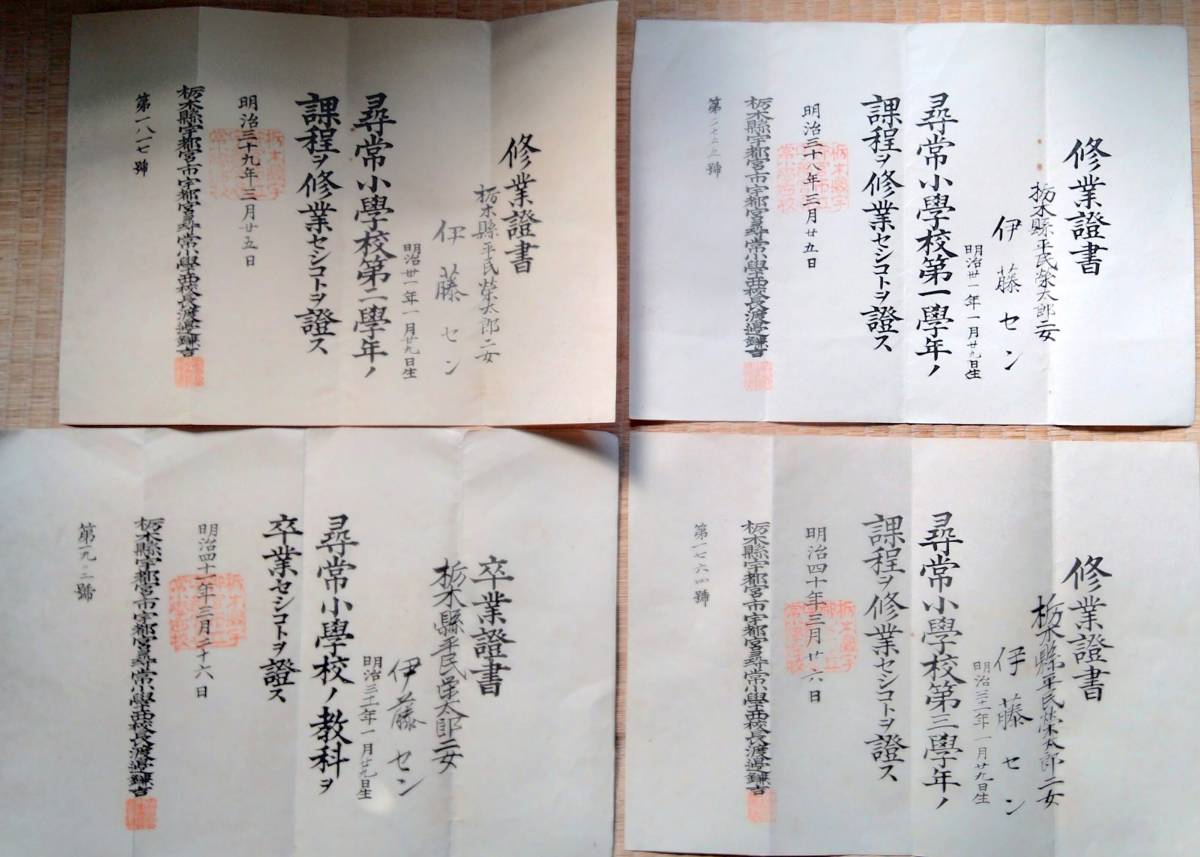 修業證書
栃木縣平民榮太郎二女
伊藤セン
明治卅一年一月廿九日生
尋常小學校第一學年ノ
課程ヲ修業セシコトヲ證ス
明治三十八年三月廿五日
栃木縣宇都宮市宇都宮尋常小學西校長渡邊鎌吉
修業證書
栃木縣平民榮太郎二女
伊藤セン
明治卅一年一月廿九日生
尋常小學校第二學年ノ
課程ヲ修業セシコトヲ證ス
明治三十九年三月廿五日
栃木縣宇都宮市宇都宮尋常小學西校長渡邊鎌吉
第一八一七號
修業證書
栃木縣平民榮太郎二女
伊藤セン
明治三十一年一月廿九日生
尋常小學校第三學年ノ
課程ヲ修業セシコトヲ證ス
明治四十年三月廿六日
栃木縣宇都宮市宇都宮尋常小學西校長渡邊鎌吉
第一七六四號
卒業證書
栃木縣平民榮太郎二女
伊藤セン
明治三十一年一月廿九日生
尋常小學校ノ教科ヲ
卒業セシコトヲ證ス
明治四十一年三月二十六日
栃木縣宇都宮市宇都宮尋常小學西校長渡邊鎌吉